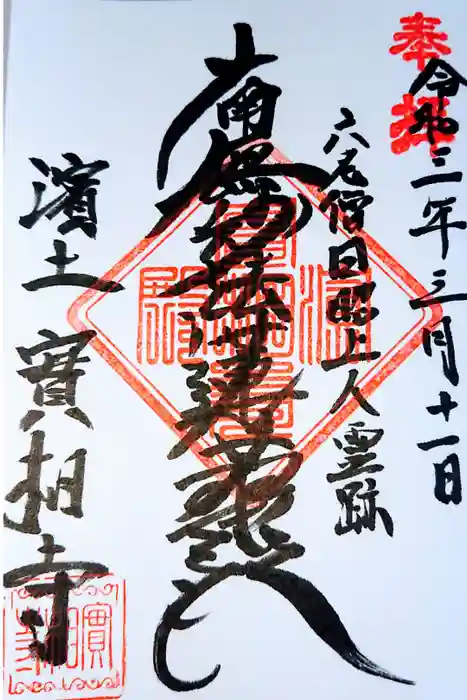 奉拝
令和三年三月十一日
六老僧日昭上人霊跡
南無妙法蓮華経
濱土 實相寺